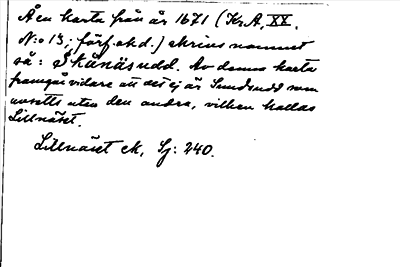 Å en karta från år 1671 (Kr.A, XX.
N:o 13; förf. okd.) skrives namnet
så: Skånäsudd. Av denna karta
framgår vidare att det ej är Sundsudd som
avsetts utan den andra, vilken kallas
Lillnäset.
Lillnäset ek, Sj: 240.